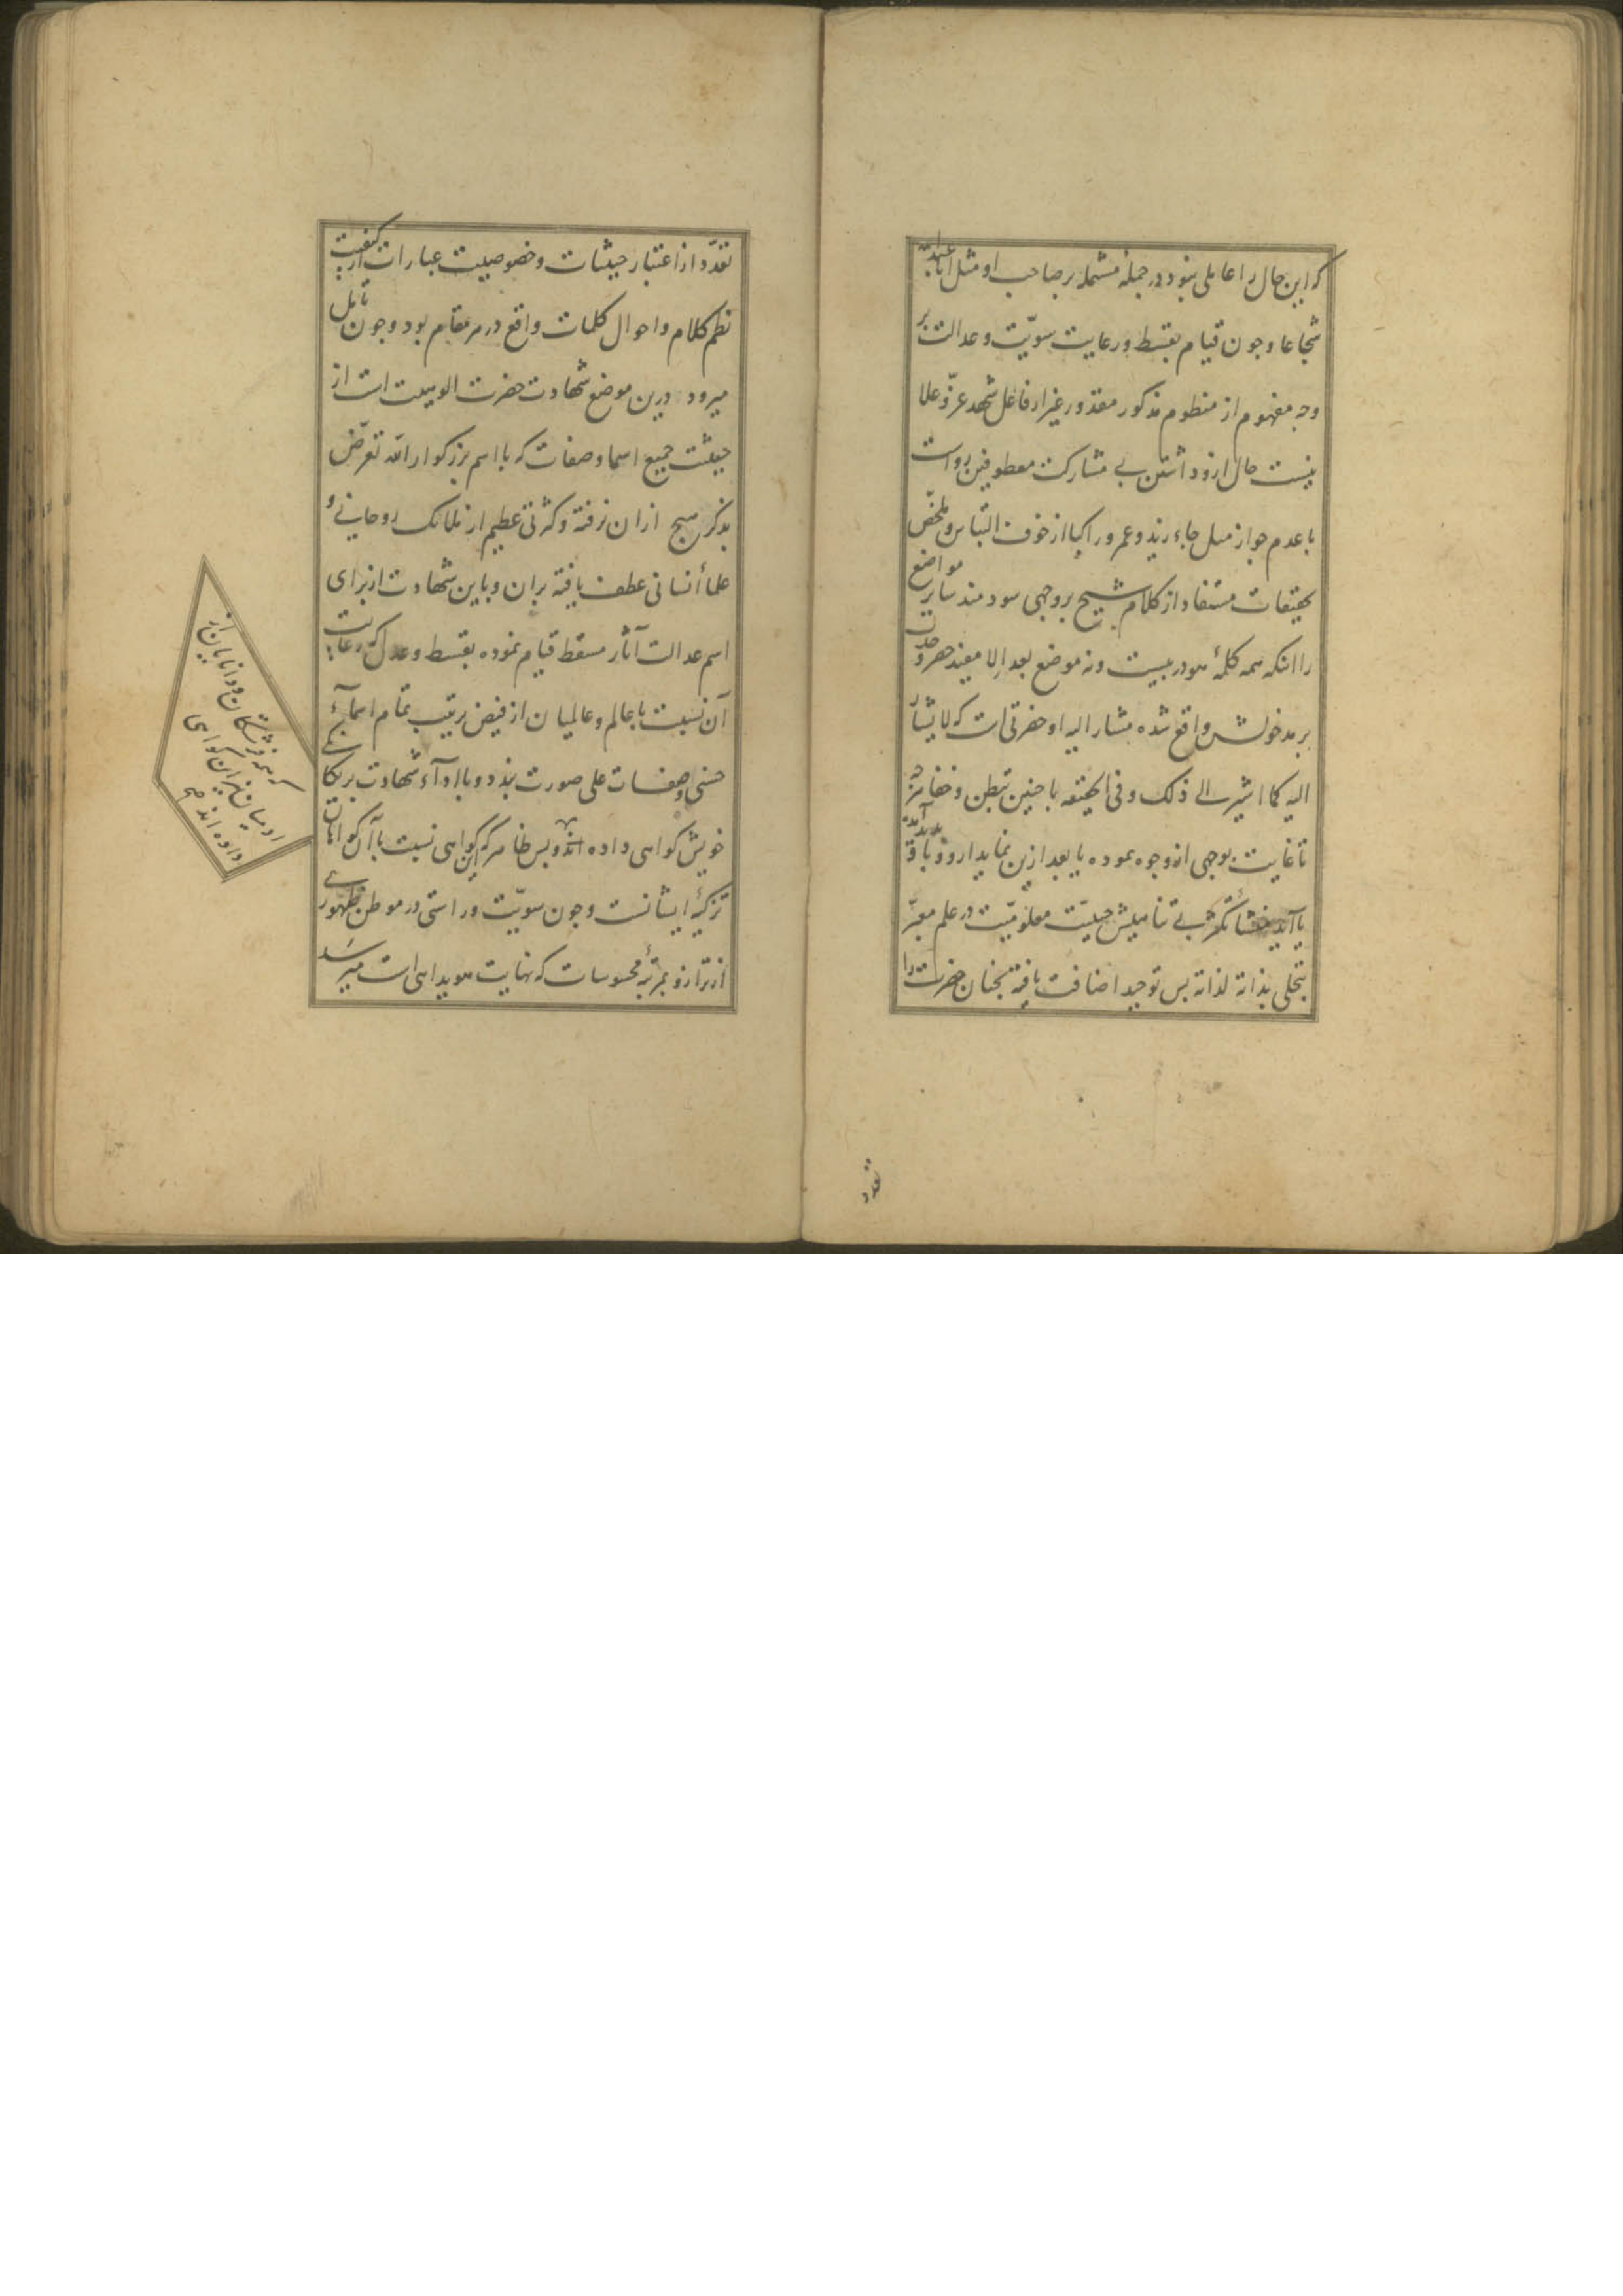 که این حال را عاملی بنود در جملهٔ مشتمله بر صاحب او مثل انا عبدالله
شجاعا و چون قیام بقسط و رعایت سویّت و عدالت بر
وجه مفهوم از منظوم مذکور مقدور غیر از فاعل شهد عزّ و علا
نیست حال ازو داشتن بی مشارکت معطوفین رواست
با عدم جواز مثل جاء زید و عمرو راکبا از خوف التباس و ملخّص
تحقیقات مستفاد از کلام شیخ بر وجهی سودمند سایر مواضع
را آنکه همه کلمهٔ هو در بیست و نه موضع بعد اِلا مفید حصر و حدت
بر مدخولش واقع شده مشار الیه او حضرتی است که لا یشار
الیه کما اشیر الی ذلک و فی الحقیقه با چنین تبطن و خفا
تا غایت بوجهی از وجوه نموده یا بعد ازین نماید ازو
یا آید بی تنا حیثیّت معلومیّت در علم
بتجلی بذاته لذاته بس توحید اضافت یافته بچنان حضرت را
تعدد
تعدّد از اعتبار حیثیات و خصوصیت عبارات از کیفیت
نظم کلام و احوال کلمات واقع در هر مقام بود و چون تأمل
میرود درین موضع شهادت حضرت الوهیت است از
حیثیت جمیع اسما و صفات که با اسم بزرگوار الله تعرّض
بذکر هیچ از ان نرفته و کثرتی عظیم از ملائک روحانی و
علماء انسانی عطف یافته بران و باین شهادت از برای
اسم عدالت آثار مقسط قیام نموده بقسط و عدل که رعایت
آن نسبت با عالم و عالمیان از فیض ترتیب تمام اسماء
حسنی و صفات علی صورت بندد و با اداء شهادت بر یکانکی
خویش کواهی داده اند و بس ظاهر که این کواهی نسبت با آن کواهان
تزکیهٔ ایشانست و چون سویّت و راستی در موطن ظهوری
از ترازو بمرتبهٔ محسوسات که نهایت هویدایی است میرسد
که همه فرشتکان و دانایان از
آدمیان نیز این کواهی
داده اند صح